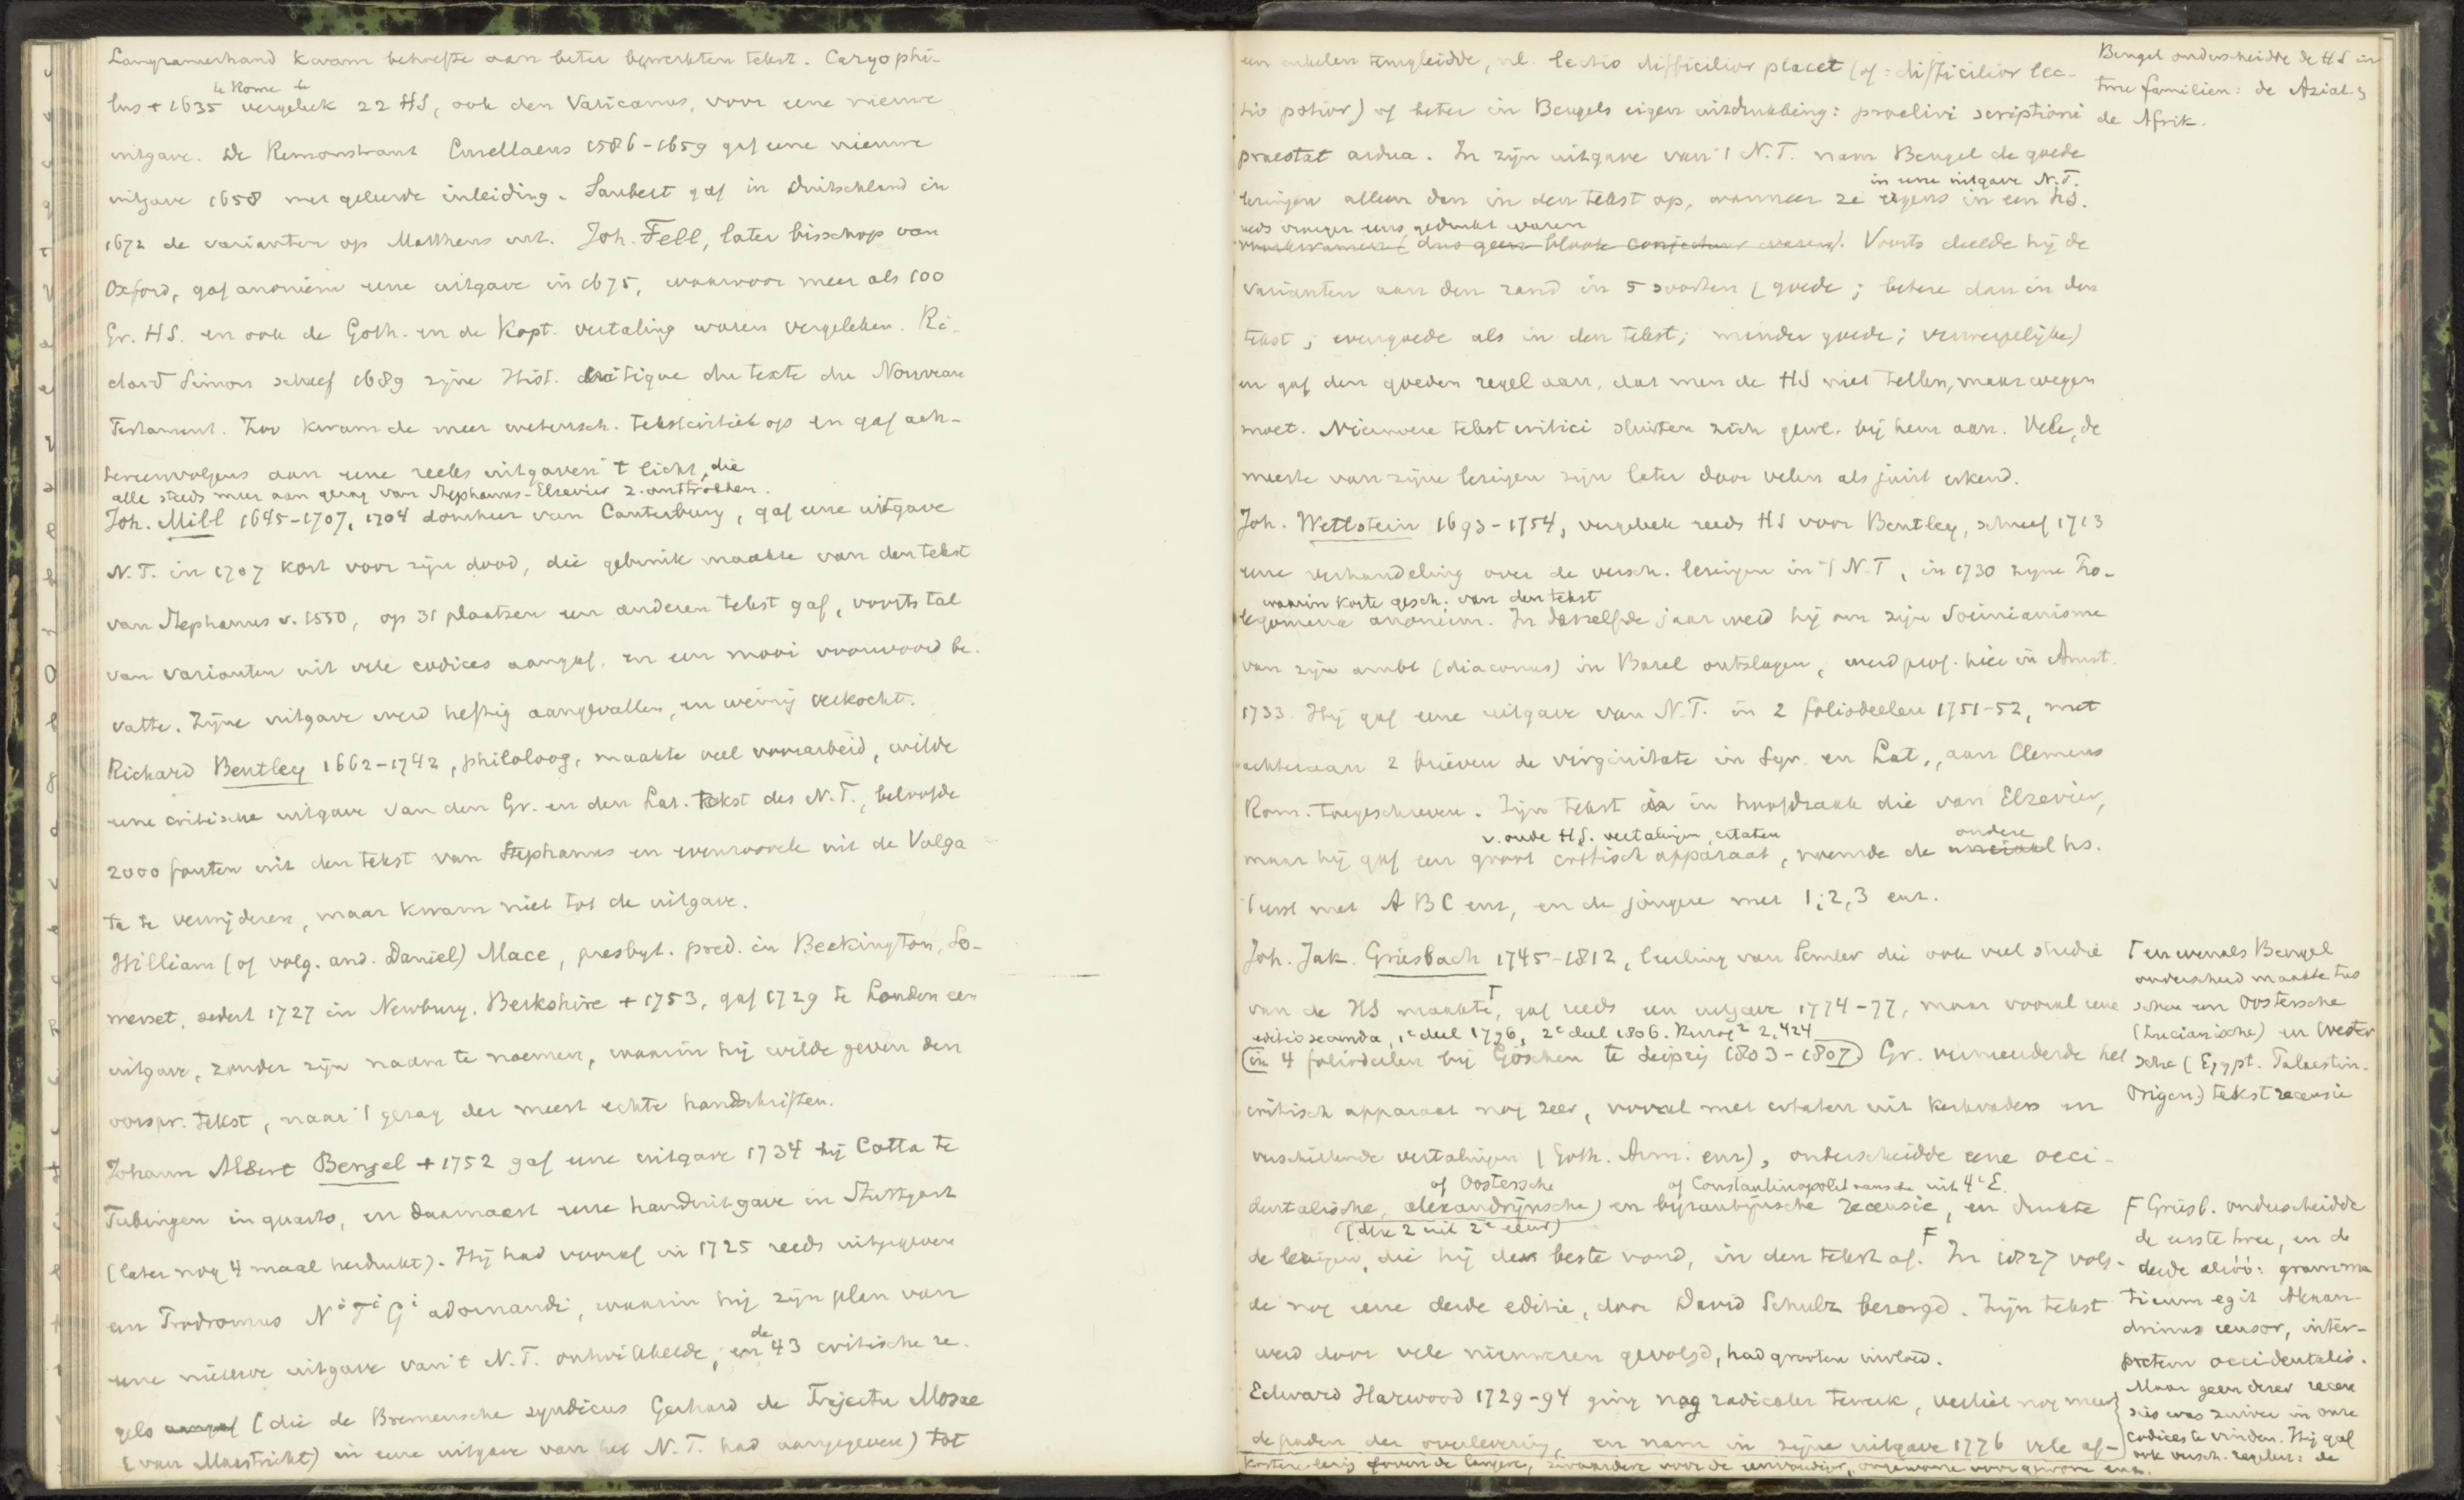 Langzamerhand kwam behoefte aan beter bewerkten tekst. Caryophi-
te Rome
lus + 1635 vergeleek 22 HS, ook den Vaticanus, voor eene nieuwe
uitgave. De Remonstrant Curcellaeus 1586-1659 gaf eene nieuwe
uitgave 1658 met geleerde inleiding. Saubert gaf in Duitschland in
1672 de varianten op Mattheus uit. Joh. Fell, later bisschop van
Oxford, gaf anoniem eene uitgave in 1675, waarvoor meer als 100
Gr. HS. en ook de Goth. en de Kopt. vertaling waren vergeleken. Ri-
chard Simon schreef 1689 zijne Hist. critique du texte du Nouveau
Testament. Zoo kwam de meer wetensch. tekstcritiek op en gaf ach-
tereenvolgens aan eene reeks uitgaven 't licht, die
alle steeds meer aan gezag van Stephanus-Elzevier z. onttrokken.
Joh. Mill 1645-1707, 1704 domheer van Canterbury, gaf eene uitgave
N.T. in 1707 kort voor zijn dood, die gebruik maakte van den tekst
van Stephanus v. 1550, op 31 plaatsen een anderen tekst gaf, voorts tal
van varianten uit vele codices aangaf, en een mooi voorwoord be-
vatte. Zijne uitgave werd heftig aangevallen, en weinig verkocht.
Richard Bentley 1662-1742, philoloog, maakte veel voorarbeid, wilde
eene critische uitgave van den Gr. en den Lat. tekst des N.T., beloofde
2000 fouten uit den tekst van Stephanus en evenzooveele uit de Vulga
ta te verwijderen, maar kwam niet tot de uitgave.
William (of volg. and. Daniel) Mace, presbyt. pred. in Beckington, So-
merset, sedert 1727 in Newbury, Berkshire + 1753, gaf 1729 te Londen een
uitgave, zonder zijn naam te noemen, waarin hij wilde geven den
oorspr. tekst, naar 't gezag der meest echte handschriften.
Johann Albert Bengel + 1752 gaf eene uitgave 1734 bij Cotta te
Tubingen in quarto, en daarnaast eene handuitgave in Stuttgart
(later nog 4 maal herdrukt). Hij had vooraf in 1725 reeds uitgegeven
een Prodromus Nⁱ Tⁱ Gⁱ adornandi, waarin hij zijn plan van
eene nieuwe uitgave van 't N.T. ontwikkelde, en de 43 critische re-
gels aangaf (die de Bremensche syndicus Gerhard de Trajectu Mosae
(van Maastricht) in eene uitgave van het N.T. had aangegeven) tot
een enkelen terugleidde, nl. lectio difficilior placet (of: difficilior lec-
tio potior) of beter in Bengels eigen uitdrukking: proclivi scriptioni
praestat ardua. In zijn uitgave van 't N.T. nam Bengel de goede
in eene uitgave N.T.
lezingen alleen dan in den tekst op, wanneer ze ergens in een hs.
reeds vroeger eens gedrukt waren
voorkwamen (dus geen bloote conjectuur waren). Voorts deelde hij de
varianten aan den rand in 5 soorten (goede; betere dan in den
tekst; evengoede als in den tekst; minder goede; verwerpelijke)
en gaf den goeden regel aan, dat men de HS niet tellen, maar wegen
moet. Nieuwere tekstcritici sluiten zich gew. bij hem aan. Vele, de
meeste van zijne lezingen zijn later door velen als juist erkend.
Joh. Wettstein 1693-1754, vergeleek reeds HS voor Bentley, schreef 1713
eene verhandeling over de versch. lezingen in 't N.T, in 1730 zijne Pro-
waarin korte gesch. van den tekst
legomena anoniem. In datzelfde jaar werd hij om zijn Socinianisme
van zijn ambt (diaconus) in Basel ontslagen, werd prof. hier in Amst.
1733. Hij gaf eene uitgave van N.T. in 2 foliodeelen 1751-52, met
achteraan 2 brieven de virginitate in Syr. en Lat., aan Clemens
Rom. toegeschreven. Zijn tekst is in hoofdzaak die van Elzevier,
v. oude HS. vertalingen, citaten
andere
maar hij gaf een groot critisch apparaat, noemde de unciaal hs.
't eerst met A B C enz, en de jongere met 1, 2, 3 enz.
Joh. Jak. Griesbach 1745-1812, leerling van Semler die ook veel studie
van de HS maakte, gaf reeds een uitgave 1774-77, maar vooral eene
editio secunda, 1ᵉ deel 1796, 2ᵉ deel 1806.
(in 4 foliodeelen bij Göschen te Leipzig 1803-1807) Gr. vermeerderde het
critisch apparaat nog zeer, vooral met citaten uit kerkvaders en
verschillende vertalingen (Goth. Arm. enz), onderscheidde eene occi-
of Oostersche
of Constantinopolitaansche uit 4ᵉ E.
dentalische, alexandrijnsche) en byzantijnsche recensie, en drukte
(die 2 uit 2ᵉ eeuw)
de lezingen, die hij de beste vond, in den tekst af. In 1827 volg-
de nog eene derde editie, door David Schulz bezorgd. Zijn tekst
werd door vele nieuweren gevolgd, had grooten invloed.
Edward Harwood 1729-94 ging nog radicaler te werk, verliet nog meer
de paden der overlevering, en nam in zijne uitgave 1776 vele af-
kortere lezing boven de langere, zwaardere voor de eenvoudiger, ongewone voor gewone enz.
Bengel onderscheidde de HS in
twee familien: de Aziat. &
de Afrik.
T en evenals Bengel
onderscheid maakte tus
schen een Oostersche
(Lucianische) en Wester
sche (Egypt. Palaestin.
Origen.) tekst recensie
F Griesb. onderscheidde
de eerste twee, en de
derde aldus: gramma
ticum egit Alexan-
drinus censor, inter-
pretem occidentalis.
Maar geen dezer recen
sies was zuiver in onze
codices te vinden. Hij gaf
ook versch. regelen: de